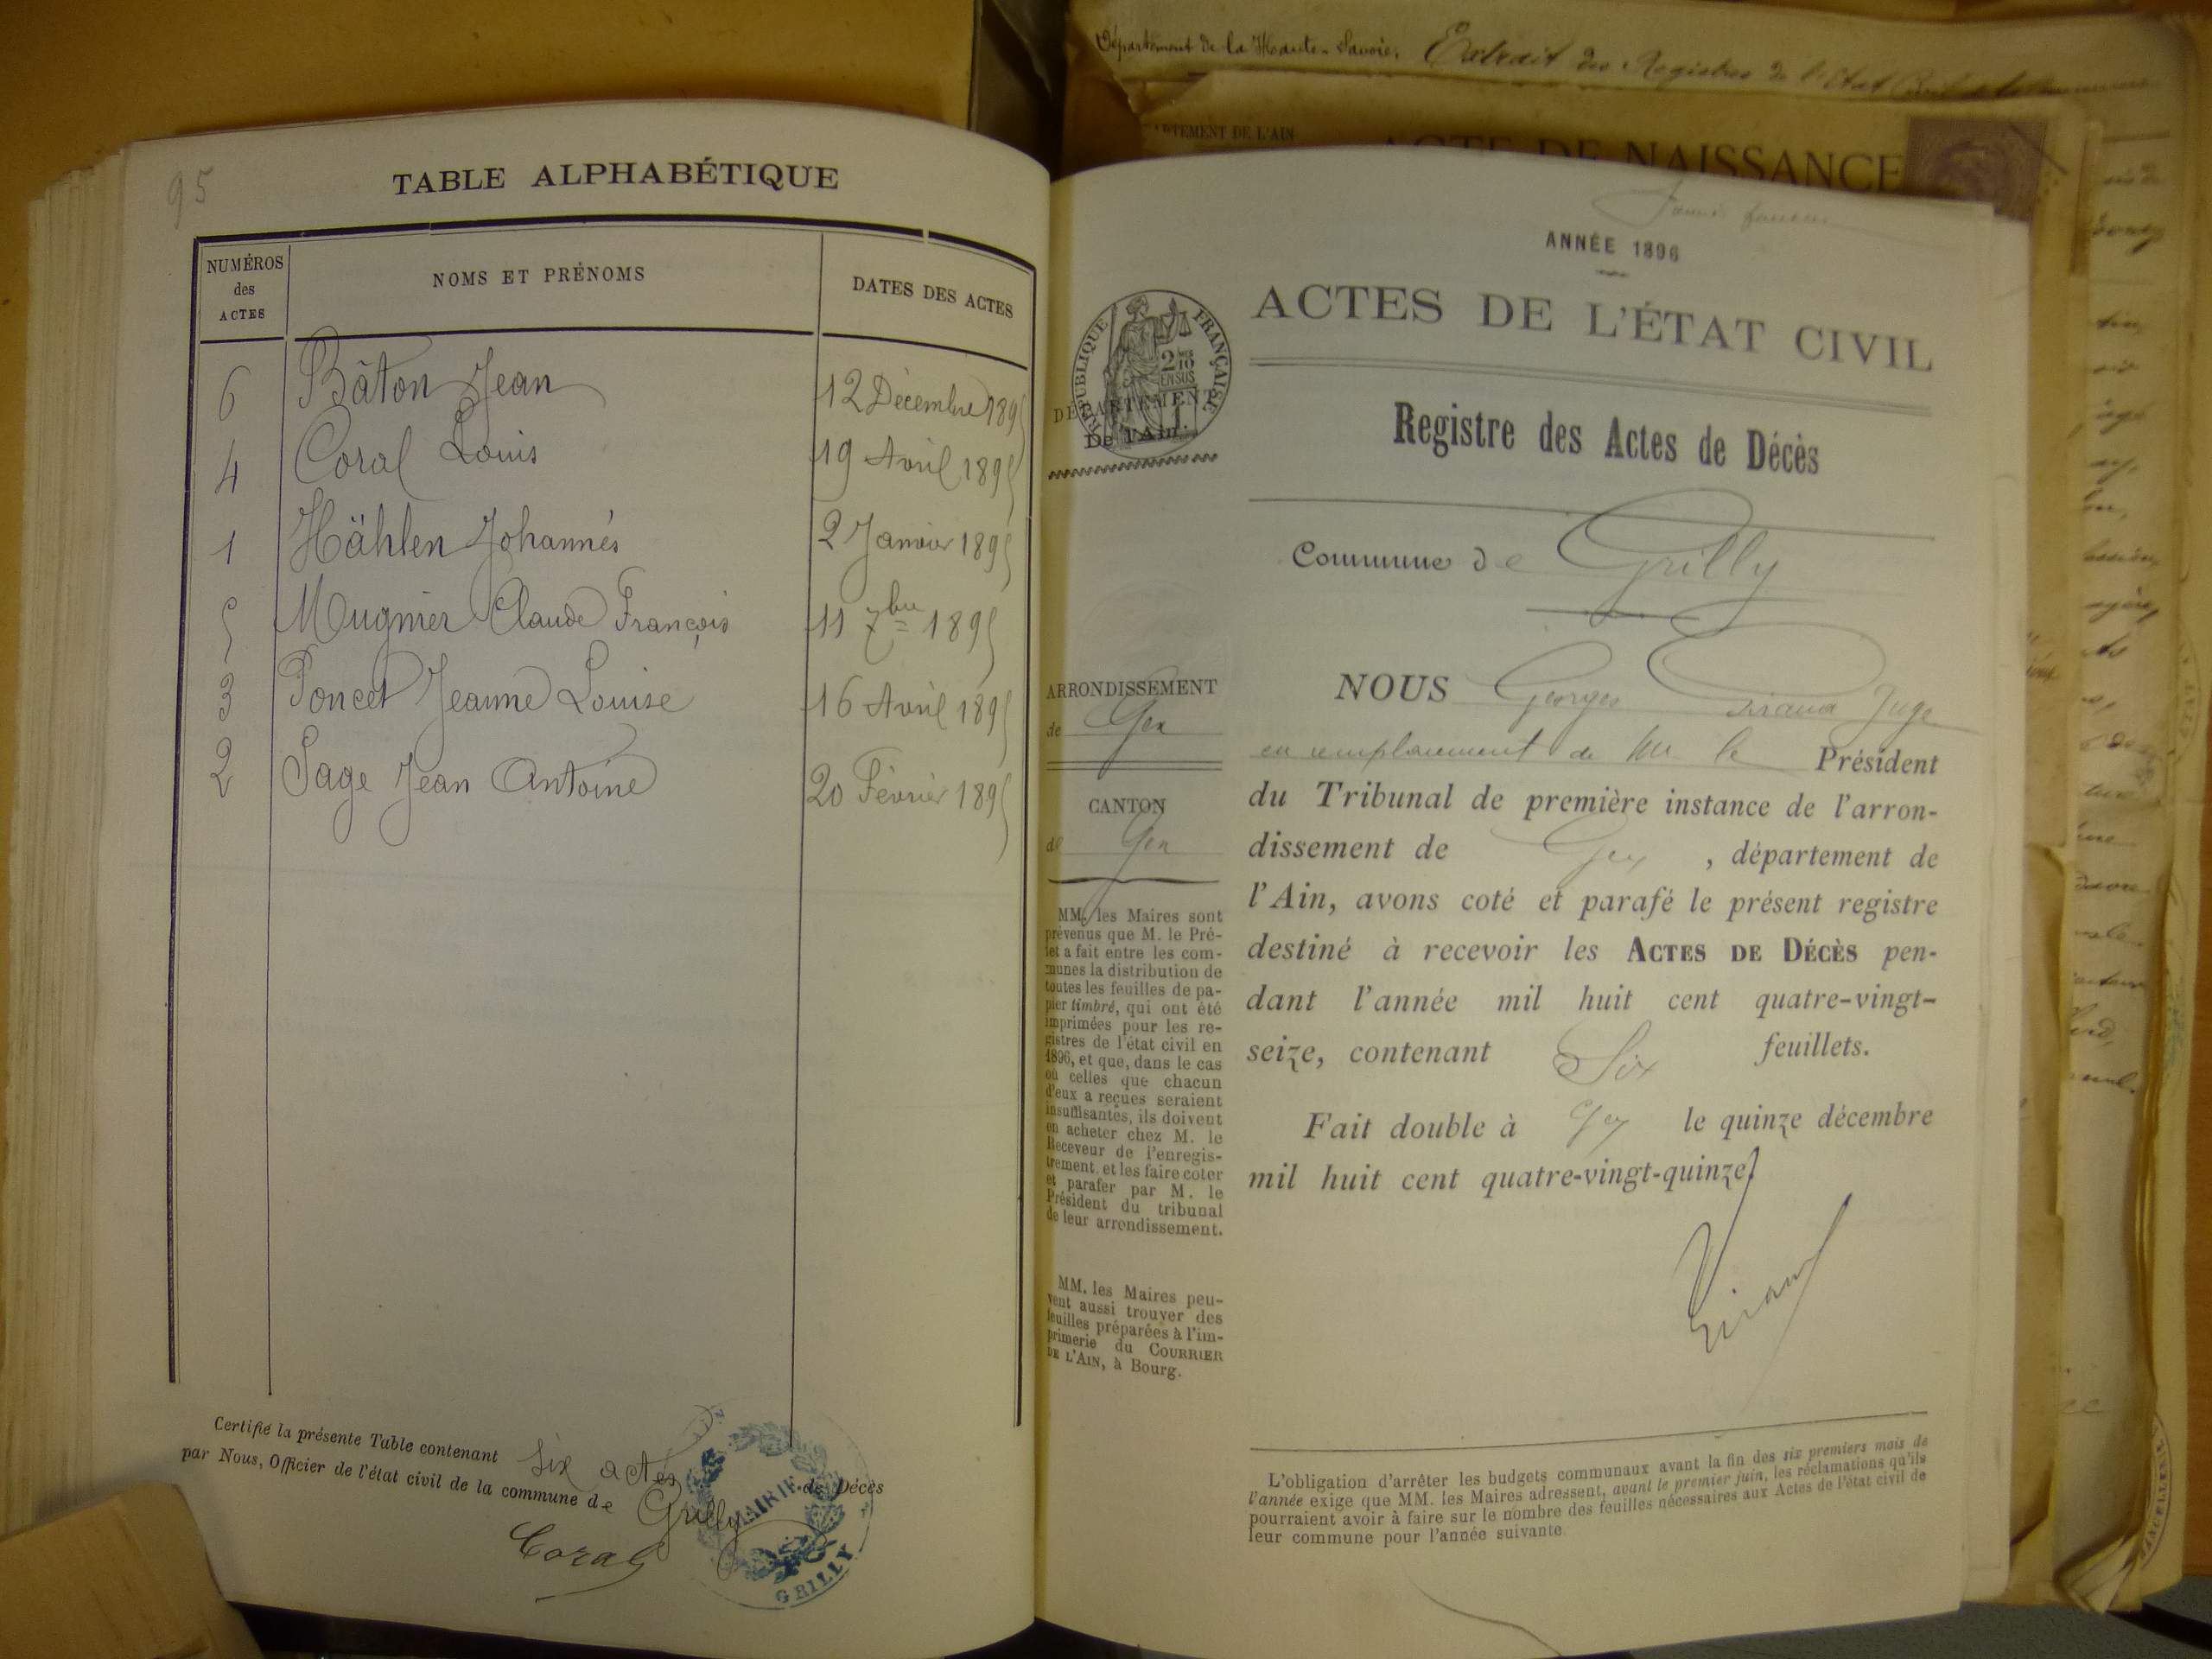 95
TABLE ALPHABÉTIQUE
NUMÉROS des ACTES
NOMS ET PRÉNOMS
DATES DES ACTES
6 Bâton Jean 12 Décembre 1895
4 Coral Louis 19 Avril 1895
1 Hählen Johannés 2 Janvier 1895
5 Mugnier Claude François 11 7bre 1895
3 Poncet Jeanne Louise 16 Avril 1895
2 Sage Jean Antoine 20 Février 1895
Certifié la présente Table contenant six actes de Décès
par Nous, Officier de l'état civil de la commune de Grilly
Coral
MAIRIE
GRILLY
Département de la Haute-Savoie. Extrait des Registres de l'Etat Civil de la
ARTEMENT DE L'AIN
ACTE DE NAISSANCE
ANNÉE 1896
ACTES DE L'ÉTAT CIVIL
RÉPUBLIQUE FRANÇAISE
2/10 EN SUS
DÉPARTEMENT
De l'Ain.
Registre des Actes de Décès
Commune de Grilly
ARRONDISSEMENT
de Gex
CANTON
de Gex
MM. les Maires sont
prévenus que M. le Pré-
fet a fait entre les com-
munes la distribution de
toutes les feuilles de pa-
pier timbré, qui ont été
imprimées pour les re-
gistres de l'état civil en
1896, et que, dans le cas
où celles que chacun
d'eux a reçues seraient
insuffisantes, ils doivent
en acheter chez M. le
Receveur de l'enregis-
trement, et les faire coter
et parafer par M. le
Président du tribunal
de leur arrondissement.
MM. les Maires peu-
vent aussi trouver des
feuilles préparées à l'im-
primerie du COURRIER
DE L'AIN, à Bourg.
NOUS Georges Giraud Juge
en remplacement de Mr le Président
du Tribunal de première instance de l'arron-
dissement de Gex, département de
l'Ain, avons coté et parafé le présent registre
destiné à recevoir les ACTES DE DÉCÈS pen-
dant l'année mil huit cent quatre-vingt-
seize, contenant Six feuillets.
Fait double à Gex le quinze décembre
mil huit cent quatre-vingt-quinze.
Giraud
L'obligation d'arrêter les budgets communaux avant la fin des six premiers mois de
l'année exige que MM. les Maires adressent, avant le premier juin, les réclamations qu'ils
pourraient avoir à faire sur le nombre des feuilles nécessaires aux Actes de l'état civil de
leur commune pour l'année suivante